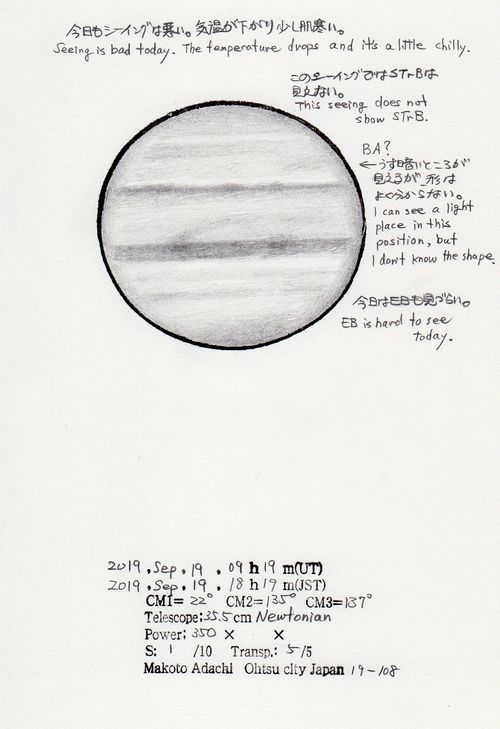 今日もシーイングは悪い。気温が下がり少し肌寒い。
Seeing is bad today. The temperature drops and it's a little chilly.
このシーイングではSTrBは
見えない。
This seeing does not
show STrB.
BA?
←うす暗いところが
見えるが、形は
よく分からない。
I can see a light
place in this
position, but
I don't know the shape.
今日はEBも見づらい。
EB is hard to see
today.
2019. Sep. 19. 09 h 19 m(UT)
2019. Sep. 19. 18 h 19 m(JST)
CM1= 22° CM2= 135° CM3= 137°
Telescope: 35.5 cm Newtonian
Power: 350 × ×
S: 1 /10 Transp.: 5/5
Makoto Adachi Ohtsu city Japan 19-108